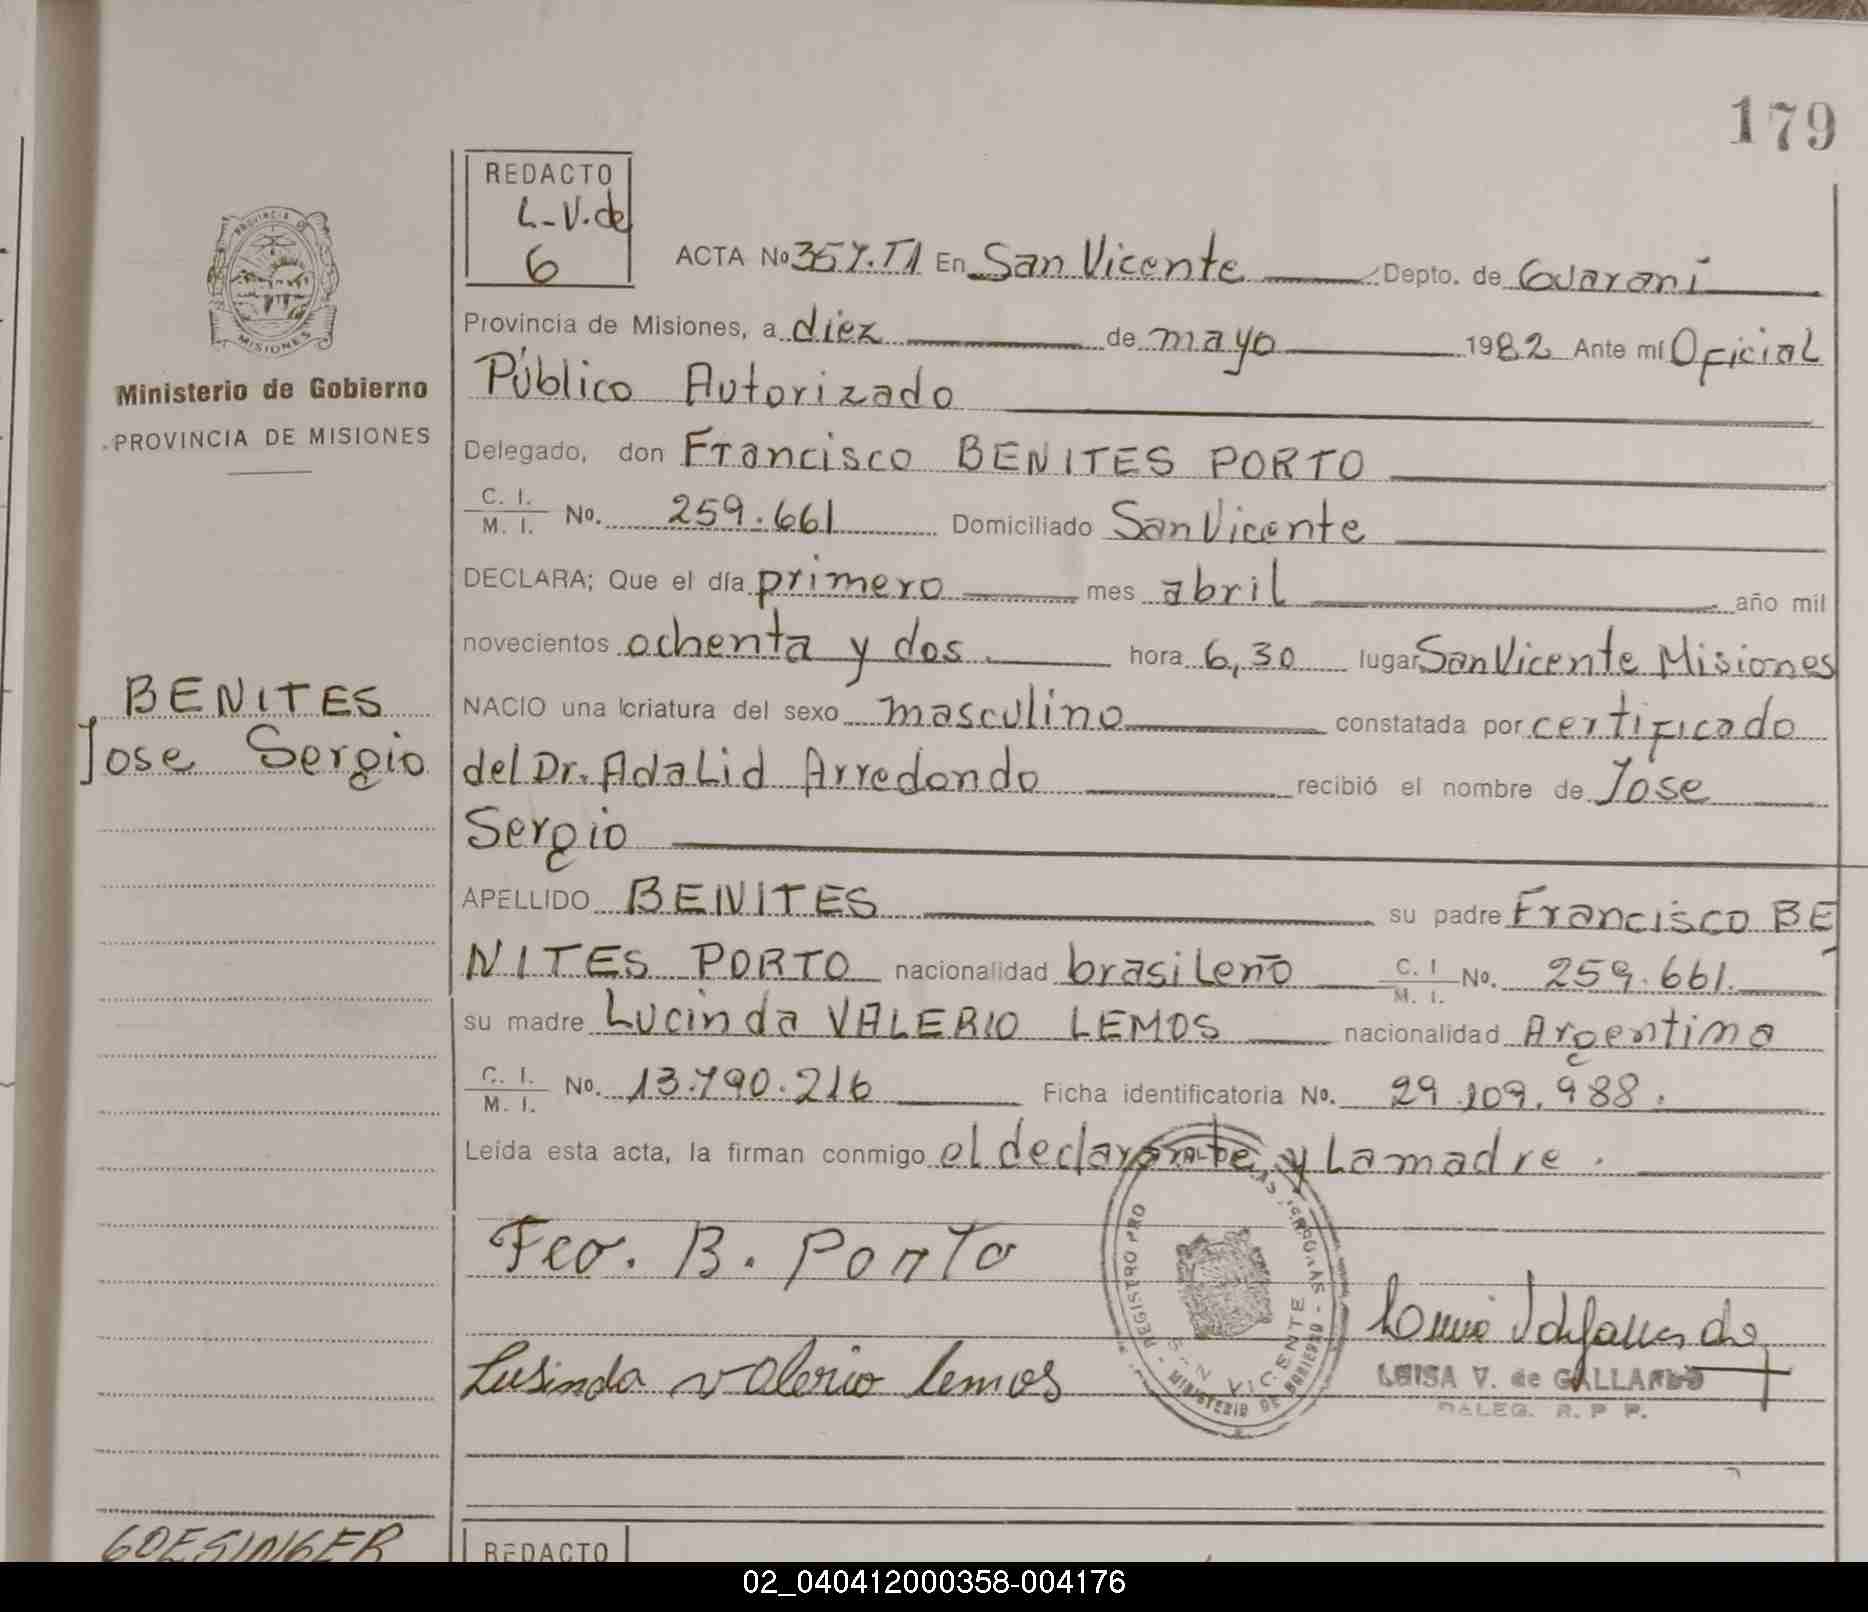 179
REDACTO
L-V.de
6
ACTA No 357.T1 En San Vicente Depto. de Guaraní
Provincia de Misiones, a diez de mayo 1982 Ante mí Oficial
Público Autorizado
Delegado, don Francisco BENITES PORTO
C. I.
M. I. No. 259.661 Domiciliado San Vicente
DECLARA; Que el día primero mes abril año mil
novecientos ochenta y dos. hora 6,30 lugar San Vicente Misiones
NACIO una criatura del sexo masculino constatada por certificado
del Dr. Adalid Arredondo recibió el nombre de Jose
Sergio
APELLIDO BENITES su padre Francisco BE
NITES PORTO nacionalidad brasileño C. I
M. I. No. 259.661.
su madre Lucinda VALERIO LEMOS nacionalidad Argentina
C. I.
M. I. No. 13.790.216 Ficha identificatoria No. 29.109.988.
Leída esta acta, la firman conmigo el declarante, y La madre.
Fco. B. Porto
Lusinda valerio lemos
LUISA V. de GALLARDO
DALEG. R. P P.
REGISTRO PRO
SAN VICENTE
MINISTERIO DE GOBIERNO
PROVINCIA DE
MISIONES
Ministerio de Gobierno
PROVINCIA DE MISIONES
BENITES
Jose Sergio
GOESINGER
REDACTO
02_040412000358-004176